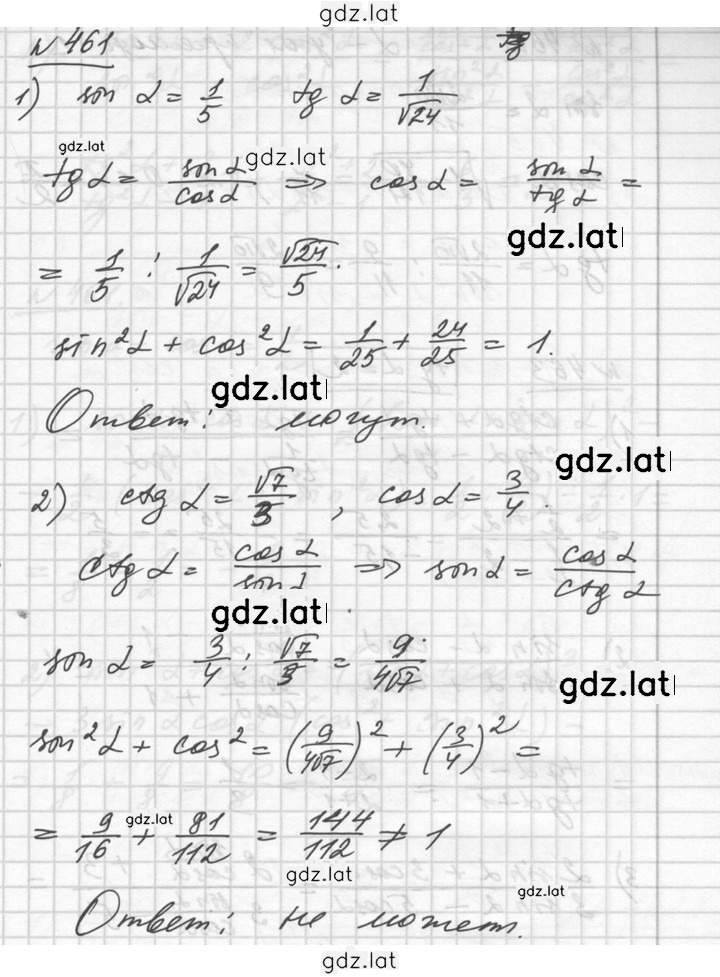 gdz.lat
№ 461
1) sin α = 1/5 tg α = 1/√24
gdz.lat
gdz.lat
tg α = sin α/cos α => cos α = sin α/tg α =
gdz.lat
= 1/5 : 1/√24 = √24/5.
sin²α + cos²α = 1/25 + 24/25 = 1.
gdz.lat
Ответ: могут.
gdz.lat
2) ctg α = √7/3, cos α = 3/4.
ctg α = cos α/sin α => sin α = cos α/ctg α
gdz.lat
sin α = 3/4 : √7/3 = 9/4√7
gdz.lat
sin²α + cos² = (9/4√7)² + (3/4)² =
gdz.lat
= 9/16 + 81/112 = 144/112 ≠ 1
gdz.lat
gdz.lat
Ответ: не может.
gdz.lat